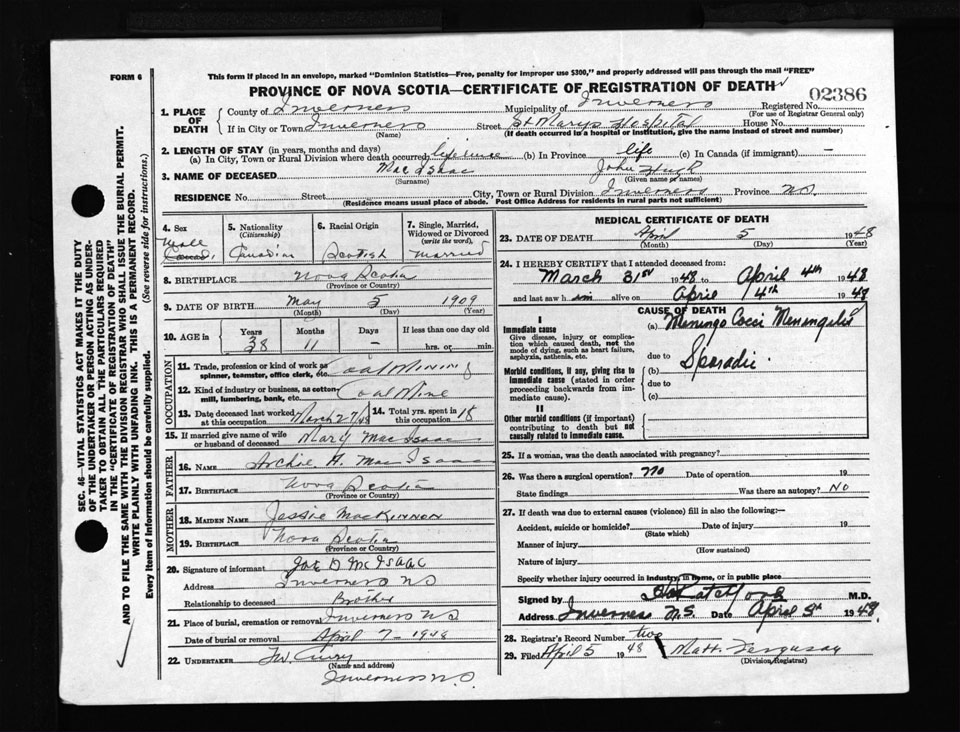 FORM 6
This form if placed in an envelope, marked "Dominion Statistics—Free, penalty for improper use $300," and properly addressed will pass through the mail "FREE"
PROVINCE OF NOVA SCOTIA—CERTIFICATE OF REGISTRATION OF DEATH
02386
1. PLACE OF DEATH
County of Inverness Municipality of Inverness Registered No.
(For use of Registrar General only)
If in City or Town Inverness Street St Marys Hospital House No.
(Name) (If death occurred in a hospital or institution, give the name instead of street and number)
2. LENGTH OF STAY (in years, months and days)
(a) In City, Town or Rural Division where death occurred life time (b) In Province life (c) In Canada (if immigrant) —
3. NAME OF DECEASED Mac Isaac John Hugh
(Surname) (Given name or names)
RESIDENCE No. Street City, Town or Rural Division Inverness Province N.S.
(Residence means usual place of abode. Post Office Address for residents in rural parts not sufficient)
4. Sex Male
5. Nationality (Citizenship) Canadian
6. Racial Origin Scottish
7. Single, Married, Widowed or Divorced (write the word) Married
8. BIRTHPLACE Nova Scotia
(Province or Country)
9. DATE OF BIRTH May 5 1909
(Month) (Day) (Year)
10. AGE in Years Months Days If less than one day old
38 11 — hrs. or min.
OCCUPATION
11. Trade, profession or kind of work as spinner, teamster, office clerk, etc. Coal Mining
12. Kind of industry or business, as cotton-mill, lumbering, bank, etc. Coal Mine
13. Date deceased last worked at this occupation March 27/48
14. Total yrs. spent in this occupation 18
15. If married give name of wife or husband of deceased Mary MacIsaac
FATHER
16. NAME Archie A. MacIsaac
17. BIRTHPLACE Nova Scotia
(Province or Country)
MOTHER
18. MAIDEN NAME Jessie MacKinnon
19. BIRTHPLACE Nova Scotia
(Province or Country)
20. Signature of informant Joe D McIsaac
Address Inverness NS
Relationship to deceased Brother
21. Place of burial, cremation or removal Inverness NS
Date of burial or removal April 7 - 1948
22. UNDERTAKER
(Name and address)
Inverness N.S.
MEDICAL CERTIFICATE OF DEATH
23. DATE OF DEATH April 5 1948
(Month) (Day) (Year)
24. I HEREBY CERTIFY that I attended deceased from:
March 31st 1948 to April 4th 1948
and last saw him alive on April 4th 1948
CAUSE OF DEATH
I
Immediate cause
Give disease, injury or complication which caused death, not the mode of dying, such as heart failure, asphyxia, asthenia, etc.
(a) Meningo Cocci Menengitis
due to
Morbid conditions, if any, giving rise to immediate cause (stated in order proceeding backwards from immediate cause).
(b) Sporadic
due to
(c)
II
Other morbid conditions (if important) contributing to death but not causally related to immediate cause.
25. If a woman, was the death associated with pregnancy?
26. Was there a surgical operation? no Date of operation 19
State findings Was there an autopsy? No
27. If death was due to external causes (violence) fill in also the following:—
Accident, suicide or homicide? Date of injury 19
(State which)
Manner of injury
(How sustained)
Nature of injury
Specify whether injury occurred in industry, in home, or in public place
Signed by M.D.
Address Inverness N.S. Date April 5th 1948
28. Registrar's Record Number two
29. Filed April 5 1948 Matt. Ferguson
(Division Registrar)
SEC. 46—VITAL STATISTICS ACT MAKES IT THE DUTY
OF THE UNDERTAKER OR PERSON ACTING AS UNDER-
TAKER TO OBTAIN ALL THE PARTICULARS REQUIRED
IN THE "CERTIFICATE OF REGISTRATION OF DEATH"
AND TO FILE THE SAME WITH THE DIVISION REGISTRAR WHO SHALL ISSUE THE BURIAL PERMIT.
WRITE PLAINLY WITH UNFADING INK. THIS IS A PERMANENT RECORD.
Every item of information should be carefully supplied. (See reverse side for instructions).